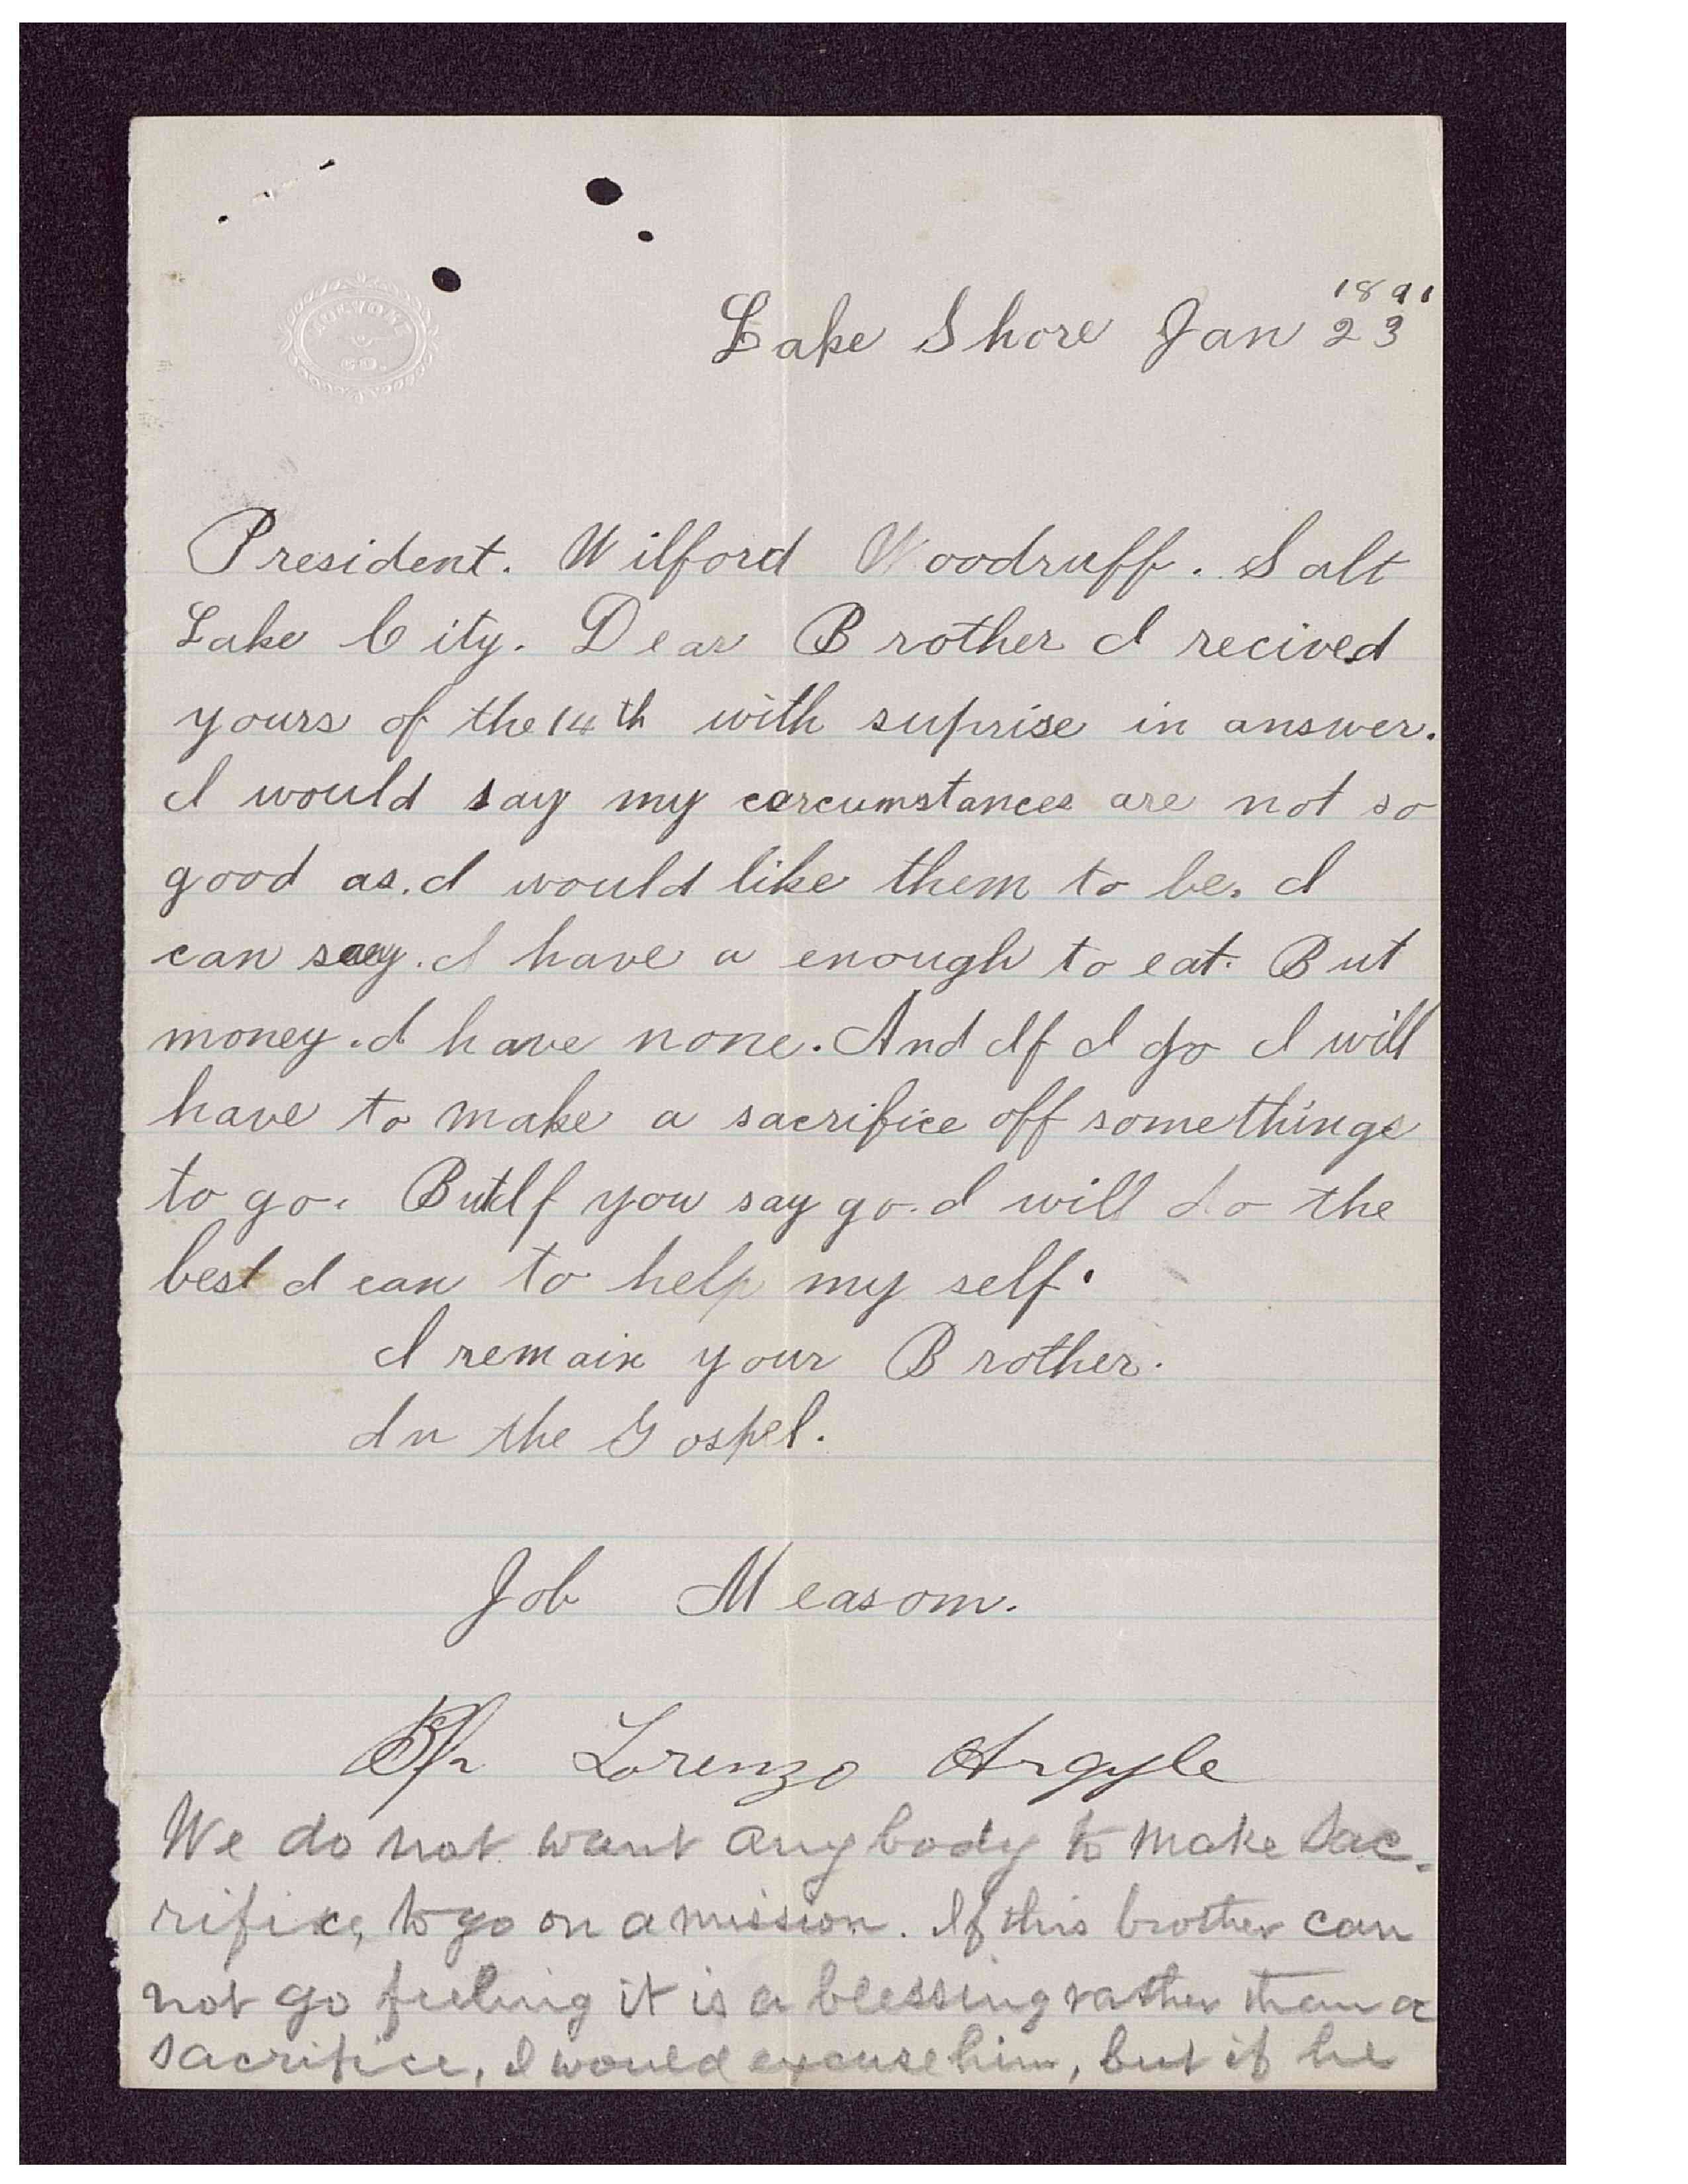 1891
Lake Shore Jan 23
President. Wilford Woodruff. Salt
Lake City. Dear Brother I recived
yours of the 14th with suprise in answer.
I would say my cercumstances are not so
good as. I would like them to be. I
can say. I have a enough to eat. But
money. I have none. And If I go I will
have to make a sacrifice off somethings
to go. But If you say go. I will do the
best I can to help my self.
I remain your Brother.
In the Gospel.
Job Measom.
Bp Lorenzo Argyle
We do not want anybody to make Sac-
rifice, to go on a mission. If this brother can
not go feeling it is a blessing rather than a
sacrifice, I would excuse him, but if he